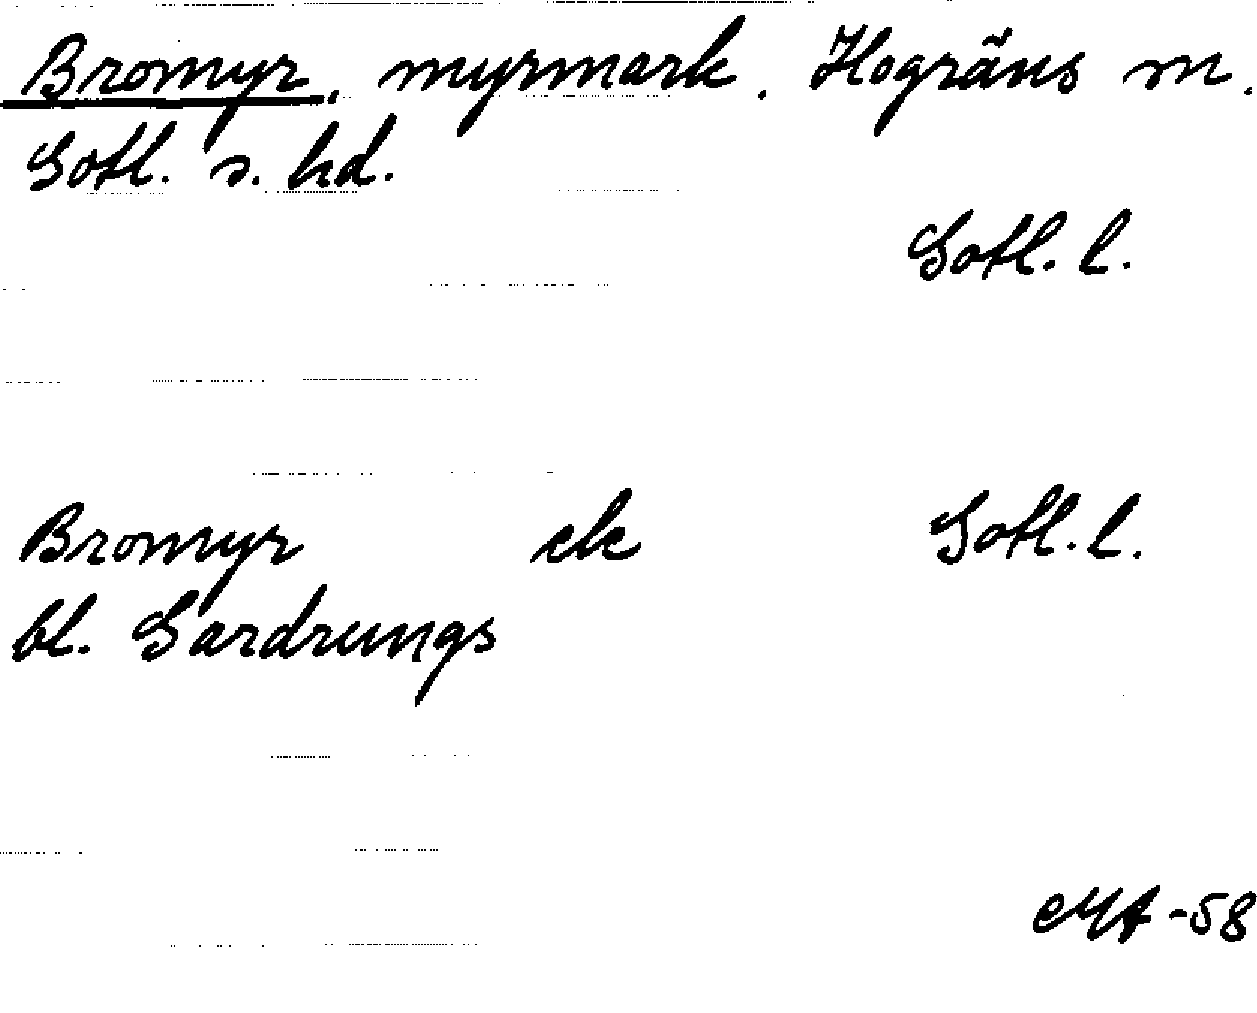 Bromyr, myrmark. Hogräns m.
Gotl. s. hd.
Gotl. l.
Bromyr ek Gotl. l.
bl. Gardrungs
MA -58